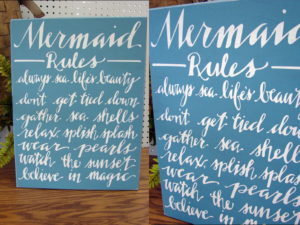 Mermaid
Rules
always sea life's beauty
don't get tied down
gather sea shells
relax, splish, splash
wear pearls
watch the sunset
believe in magic
Mermaid
Rules
always sea life's beauty
don't get tied down
gather sea shells
relax, splish, splash
wear pearls
watch the sunset
believe in magic